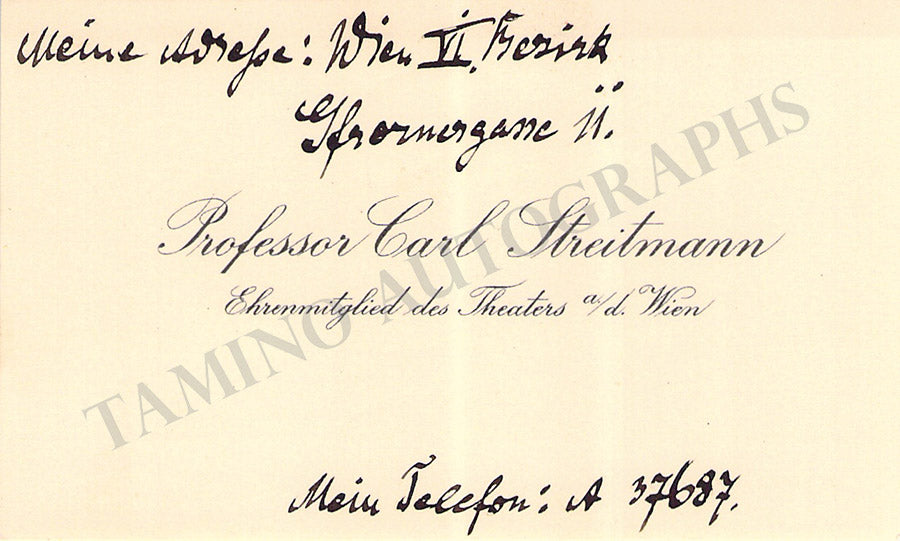 Meine Adresse: Wien VI. Bezirk
Gfrornergasse 11.
Professor Carl Streitmann
Ehrenmitglied des Theaters a/d. Wien
TAMINO AUTOGRAPHS
Mein Telefon: A 37687.